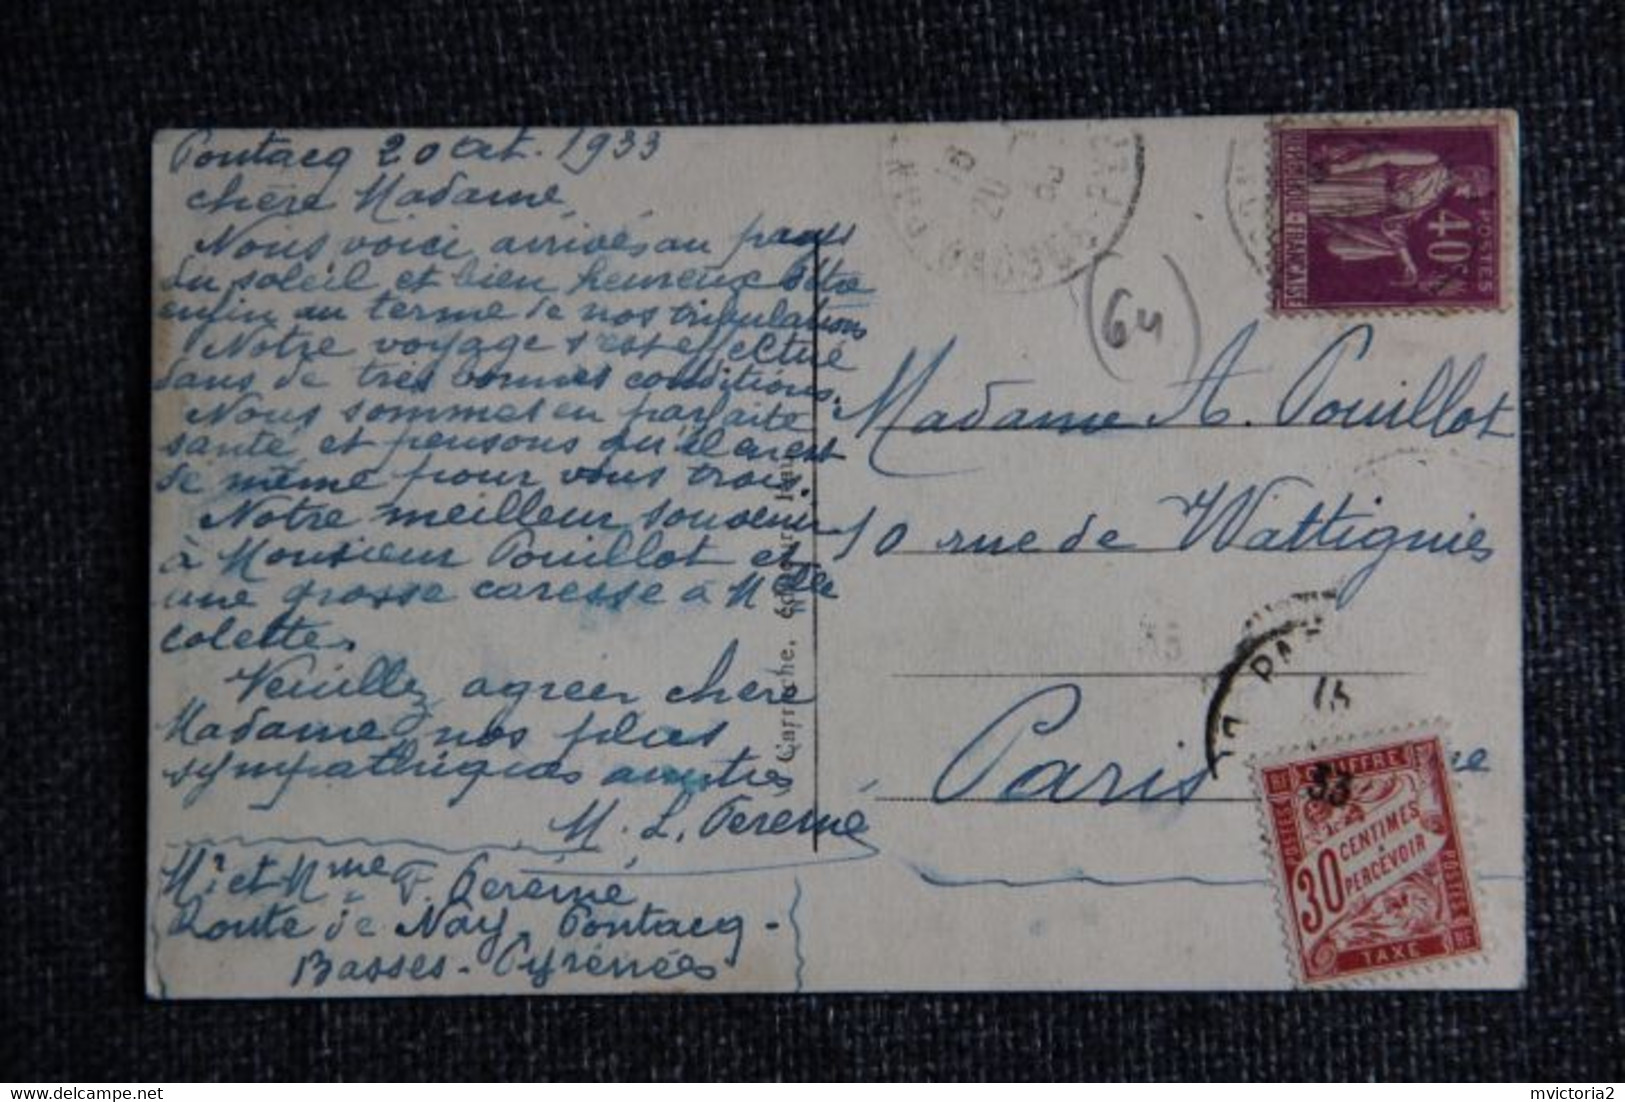 Pontacq 20 oct. 1933
chère Madame
Nous voici arrivés au pays
du soleil et bien heureux d'être
enfin au terme de nos tribulations
Notre voyage s'est effectué
dans de très bonnes conditions.
Nous sommes en parfaite
santé et pensons qu'il en est
de même pour vous trois.
Notre meilleur souvenir
à Monsieur Pouillot et
une grosse caresse à Melle
Colette.
Veuillez agréer chère
Madame nos plus
sympathiques amitiés
M. L. Peremé
Mr et Mme F. Peremé
Route de Nay Pontacq -
Basses-Pyrénées
Carrache,
(64)
Madame A. Pouillot
10 rue de Wattignies
Paris
POSTES
40c
REPUBLIQUE-FRANÇAISE
18
20
33
CHIFFRE
30 CENTIMES
A PERCEVOIR
POSTES
TAXE
RF
mvictoria2